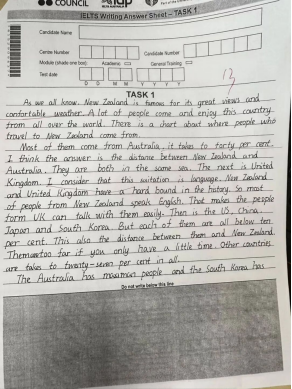 COUNCIL
IELTS Writing Answer Sheet - TASK 1
Candidate Name
Centre Number
Candidate Number
Module (shade one box): Academic General Training
Test date
D D M M Y Y Y Y
13
TASK 1
As we all know. New Zealand is famous for its great views and
comfortable weather. A lot of people come and enjoy this country
from all over the world. There is a chart about where people who
travel to New Zealand come from.
Most of them come from Australia, it takes to forty per cent.
I think the answer is the distance between New Zealand and
Australia. They are both in the same sea. The next is United
Kingdom. I consider that this is language. New Zealand
and United Kingdom have a hard bound in the history. So most
of people from New Zealand speak English. That makes the people
form UK can talk with them easily. Then is the US, China,
Japan and South Korea. But each of them are all below ten
per cent. This also the distance between them and New Zealand.
too far if you only have a little time. Other countries
are takes to twenty-seven per cent in all.
The Australia has people and the South Korea has
Do not write below this line